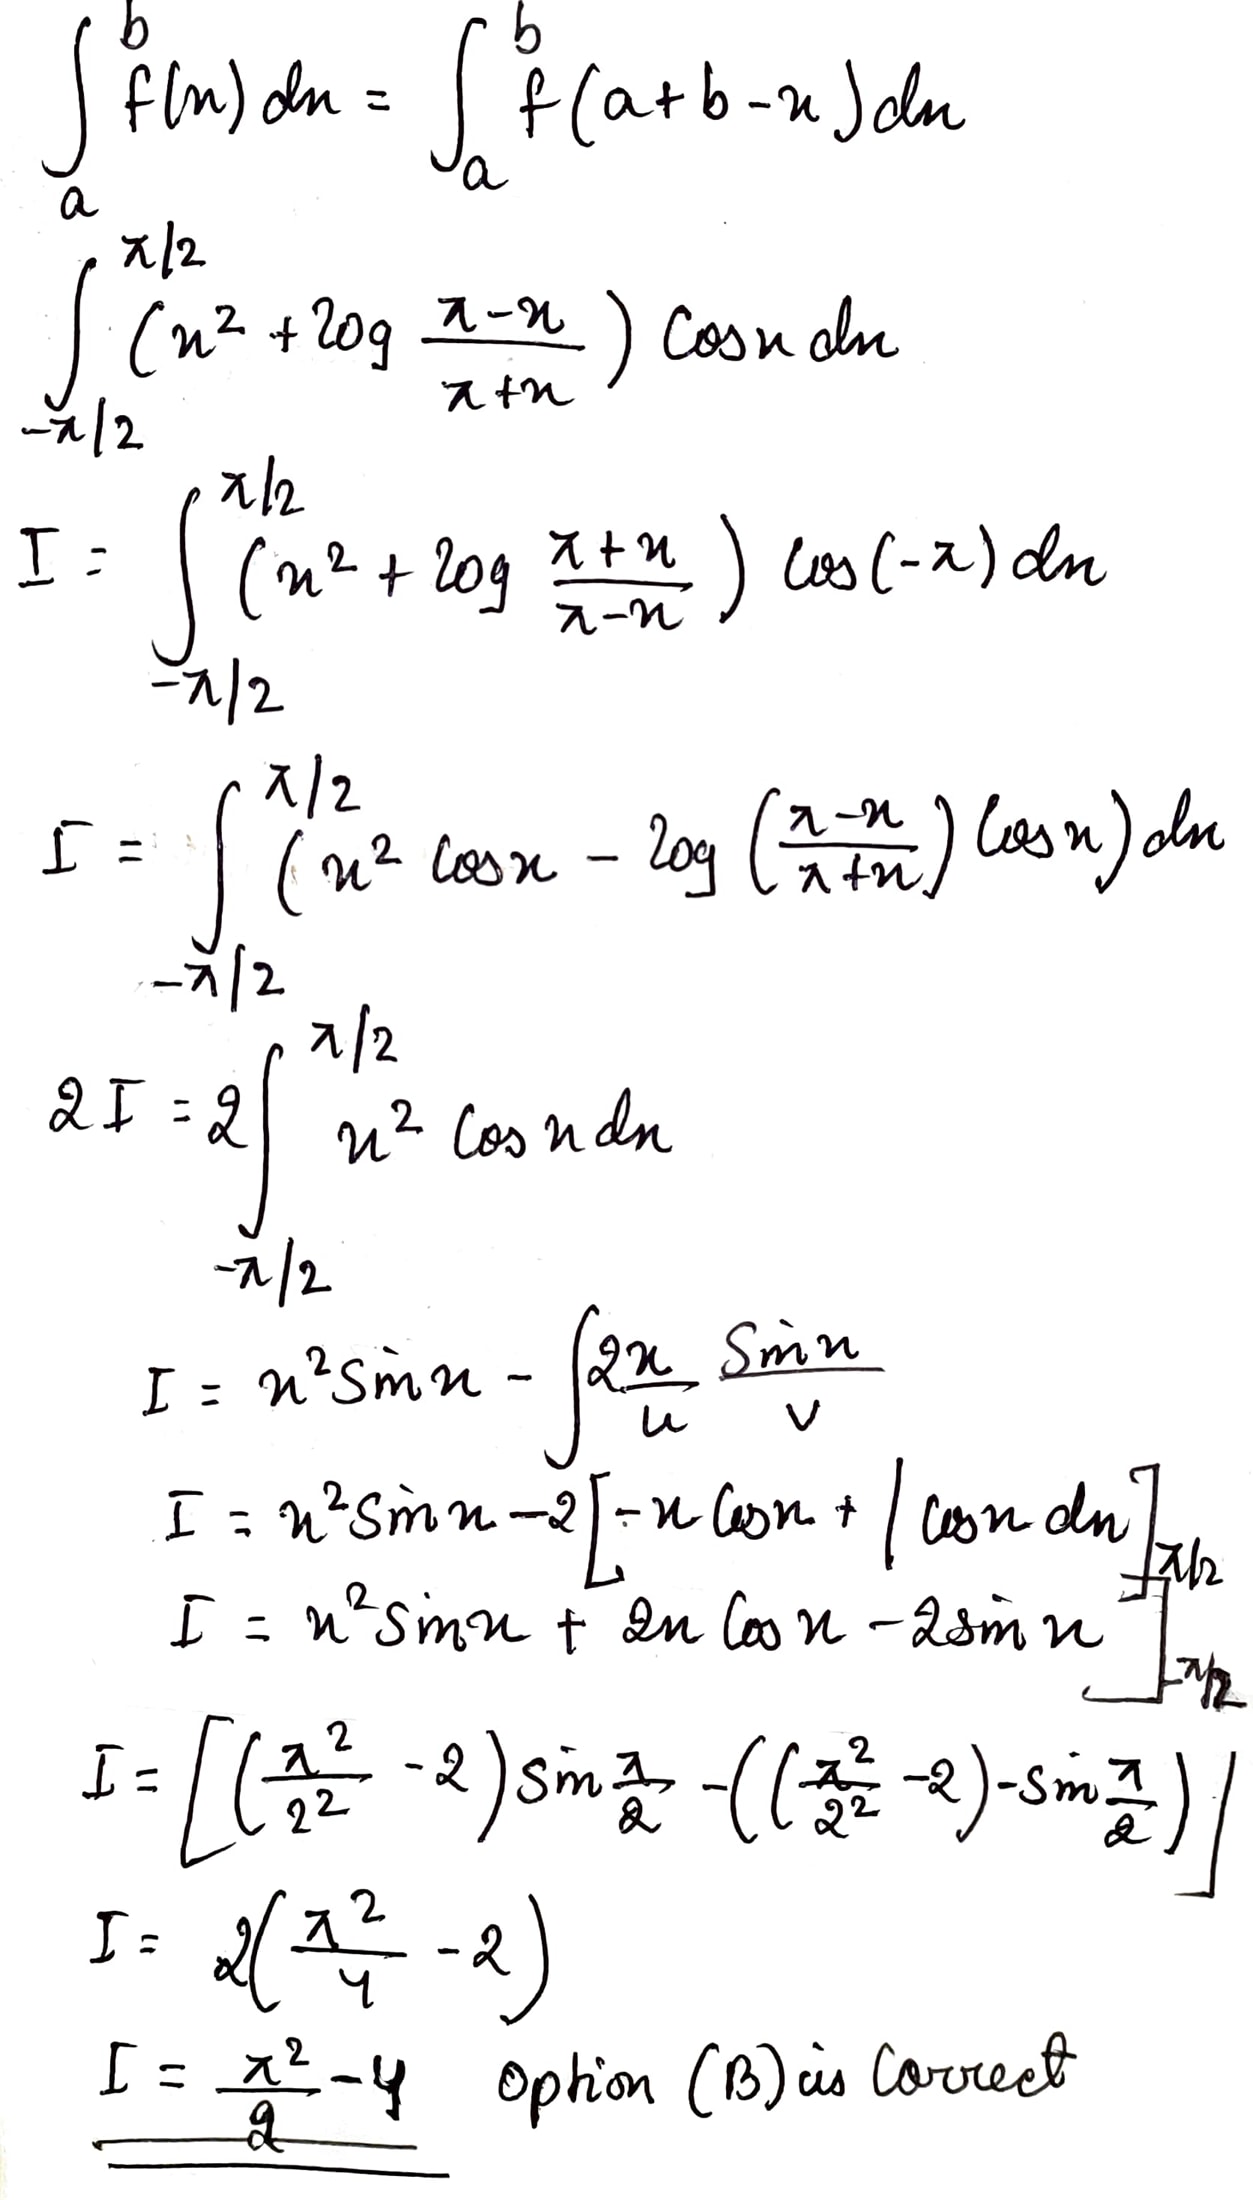 ∫_a^b f(x) dx = ∫_a^b f(a+b-x) dx
∫_{-π/2}^{π/2} (x² + log (π-x)/(π+x)) Cosx dx
I = ∫_{-π/2}^{π/2} (x² + log (π+x)/(π-x)) Cos(-x) dx
I = ∫_{-π/2}^{π/2} (x² Cosx - log ((π-x)/(π+x)) Cosx) dx
2I = 2∫_{-π/2}^{π/2} x² Cosx dx
I = x² Sinx - ∫ 2x/u Sinx/v
I = x² Sinx - 2[-x Cosx + ∫ Cosx dx]
I = x² Sinx + 2x Cosx - 2sinx ]_{-π/2}^{π/2}
I = [(π²/2² - 2) Sin π/2 - ((π²/2² - 2) - Sin π/2)]
I = 2(π²/4 - 2)
I = π²/2 - 4 Option (B) is Correct